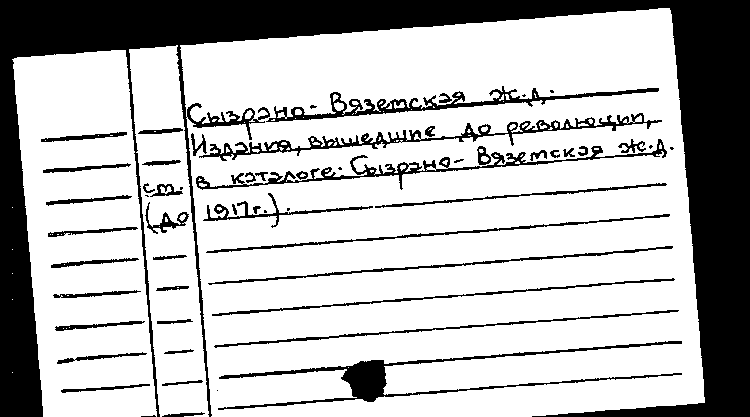 Сызрано-Вяземская ж.д.
Издания, вышедшие до революции,
ст. в каталоге: Сызрано-Вяземская ж.д.
(до 1917г.).